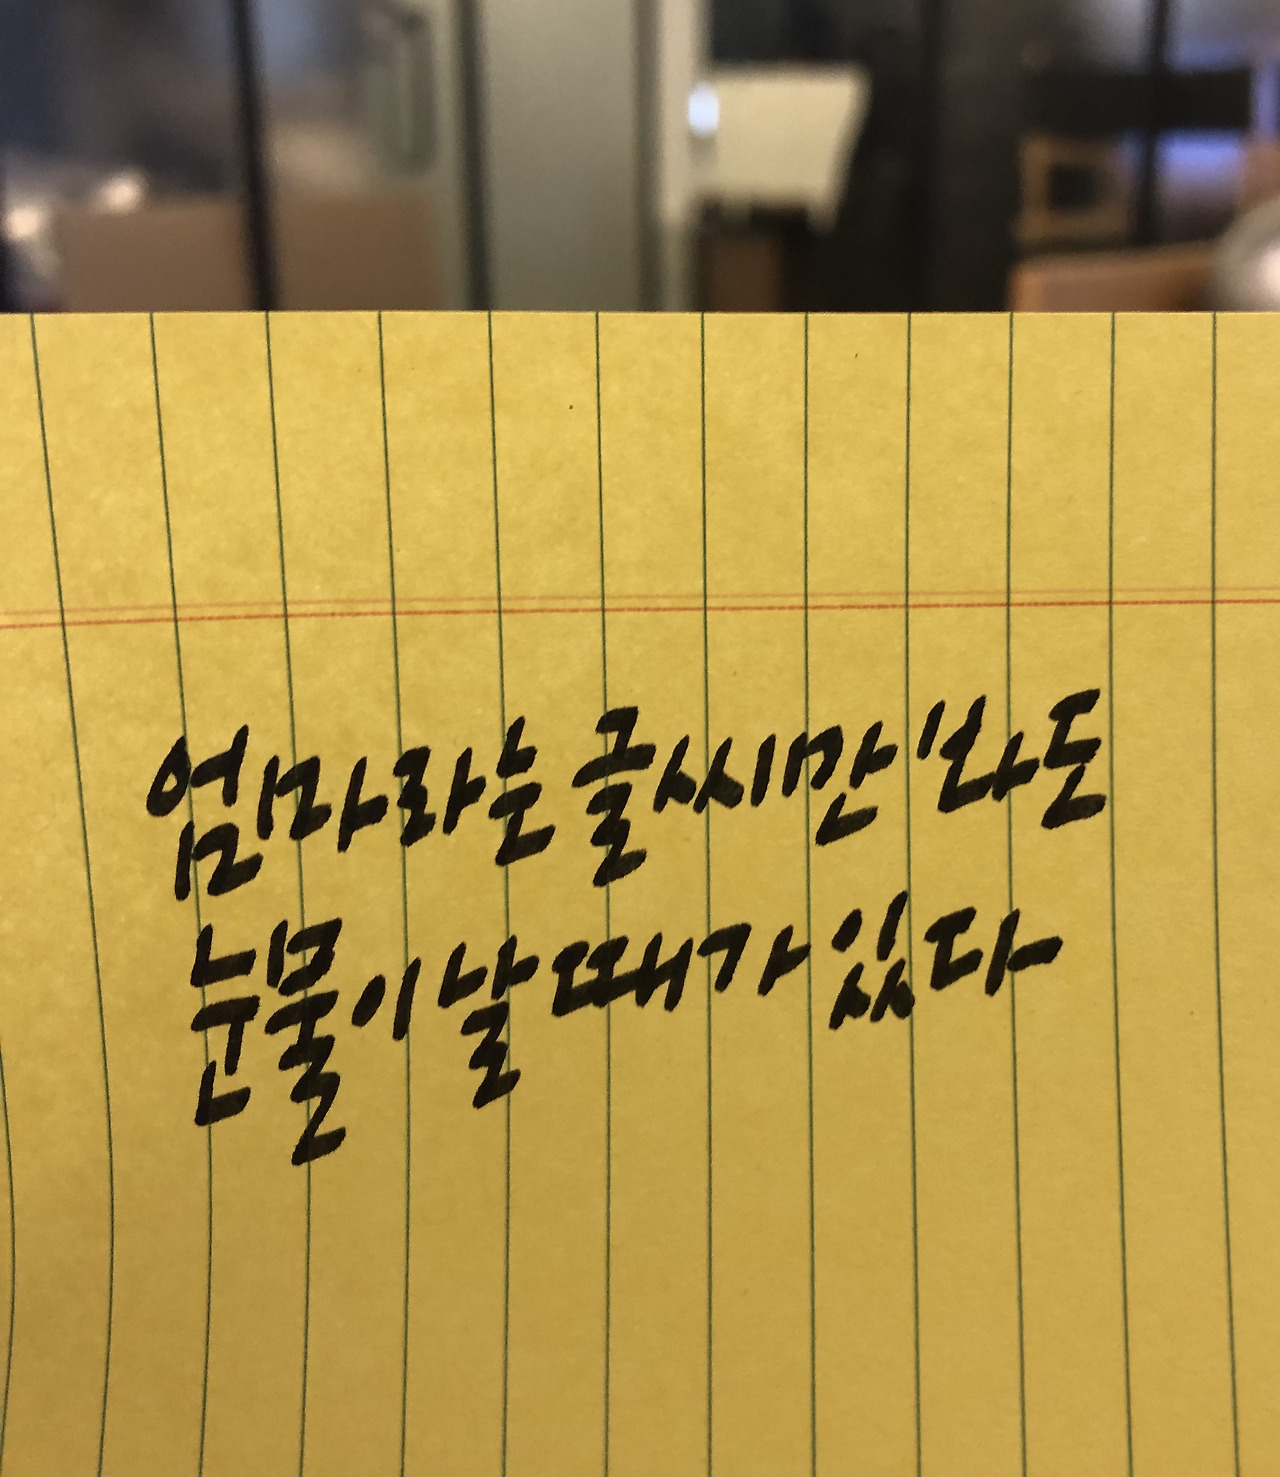 엄마라는 글씨만 봐도
눈물이 날 때가 있다